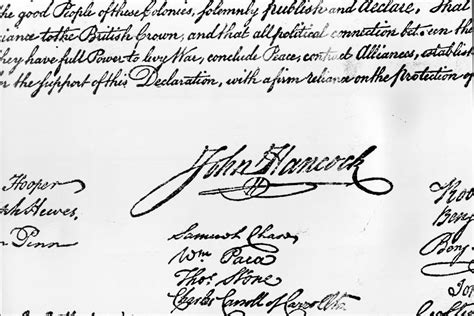 the good People of these Colonies, solemnly publish and declare, That
iance to the British Crown, and that all political connection bet een the
they have full Power to levy War, conclude Peace, contract Alliances, establis
for the support of this Declaration, with a firm reliance on the Protection of
John Hancock
Hooper
ph Hewes,
Penn
Samuel Chase
Wm Paca
Thos Stone
Charles Carroll of Carrollton
Benj